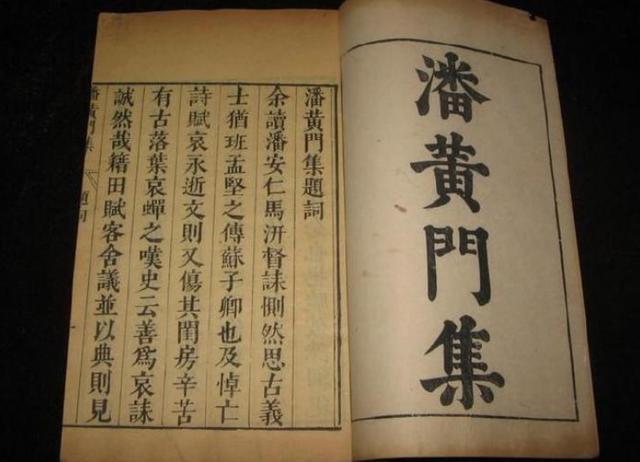 潘黄門集
潘黄門集題詞
余讀潘安仁馬汧督誄惻然思古義
士猶班孟堅之傳蘇子卿也及悼亡
詩賦哀永逝文則又傷其閨房辛苦
有古落葉哀蟬之嘆史云善爲哀誄
誠然哉籍田賦客舍議並以典則見
潘黄門集
題詞
一